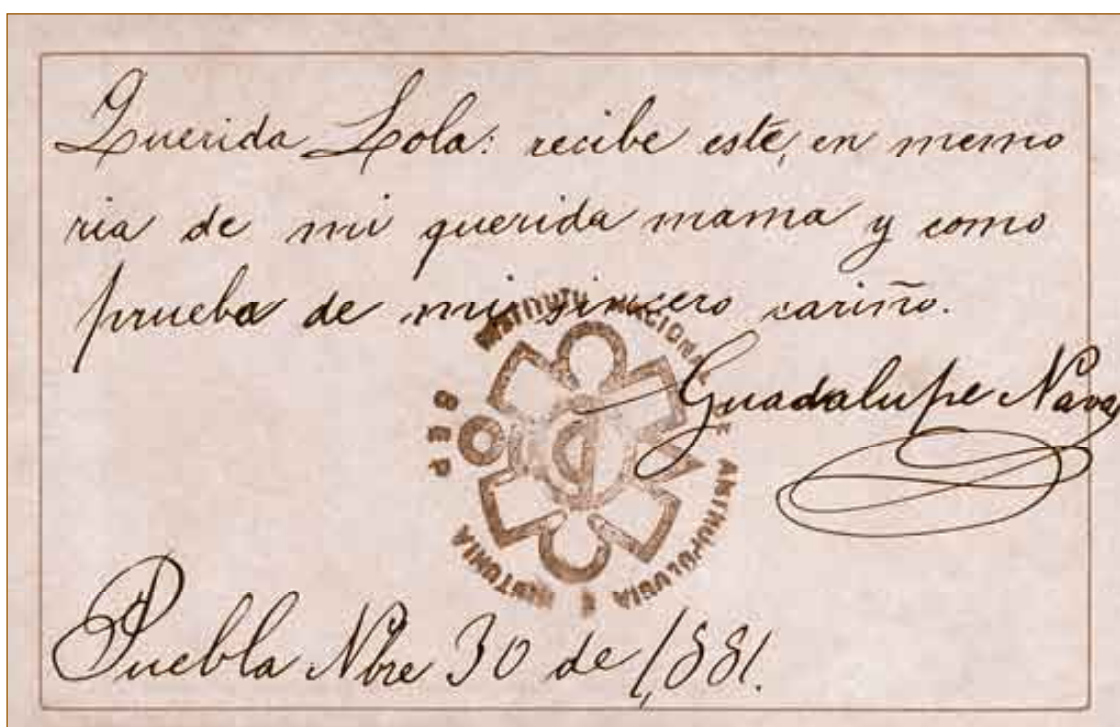 Querida Lola: recibe este, en memo
ria de mi querida mama y como
prueba de mi sincero cariño.
Guadalupe Nava
INSTITUTO NACIONAL DE ANTROPOLOGIA E HISTORIA
SEP
Puebla Nbre 30 de 1,881.